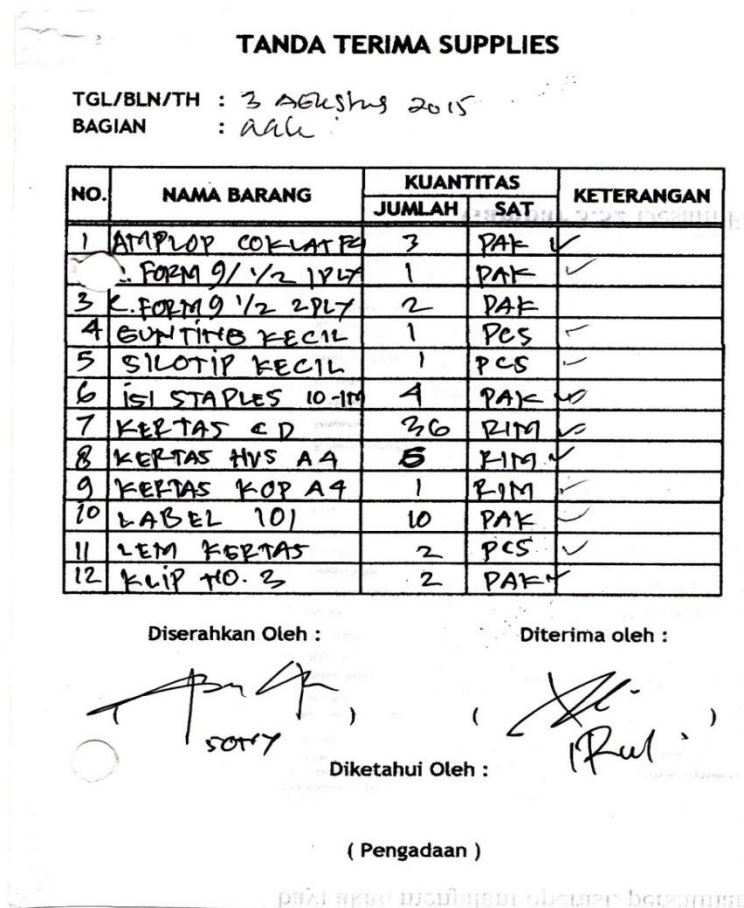 TANDA TERIMA SUPPLIES
TGL/BLN/TH : 3 AGUSTUS 2015
BAGIAN :
NO. NAMA BARANG KUANTITAS KETERANGAN
JUMLAH SAT
1 AMPLOP COKLAT 3 PAK ✓
. FORM 9/ 1/2 1PLY 1 PAK ✓
3 C. FORM 9 1/2 2PLY 2 PAK
4 GUNTING KECIL 1 PCS ✓
5 SILOTIP KECIL 1 PCS ✓
6 ISI STAPLES 10-1M 4 PAK ✓
7 KERTAS CD 36 RIM ✓
8 KERTAS HVS A4 5 RIM ✓
9 KERTAS KOP A4 1 RIM ✓
10 LABEL 101 10 PAK ✓
11 LEM KERTAS 2 PCS ✓
12 KLIP NO. 3 2 PAK ✓
Diserahkan Oleh : Diterima oleh :
( ) ( )
SONY Rul
Diketahui Oleh :
( Pengadaan )